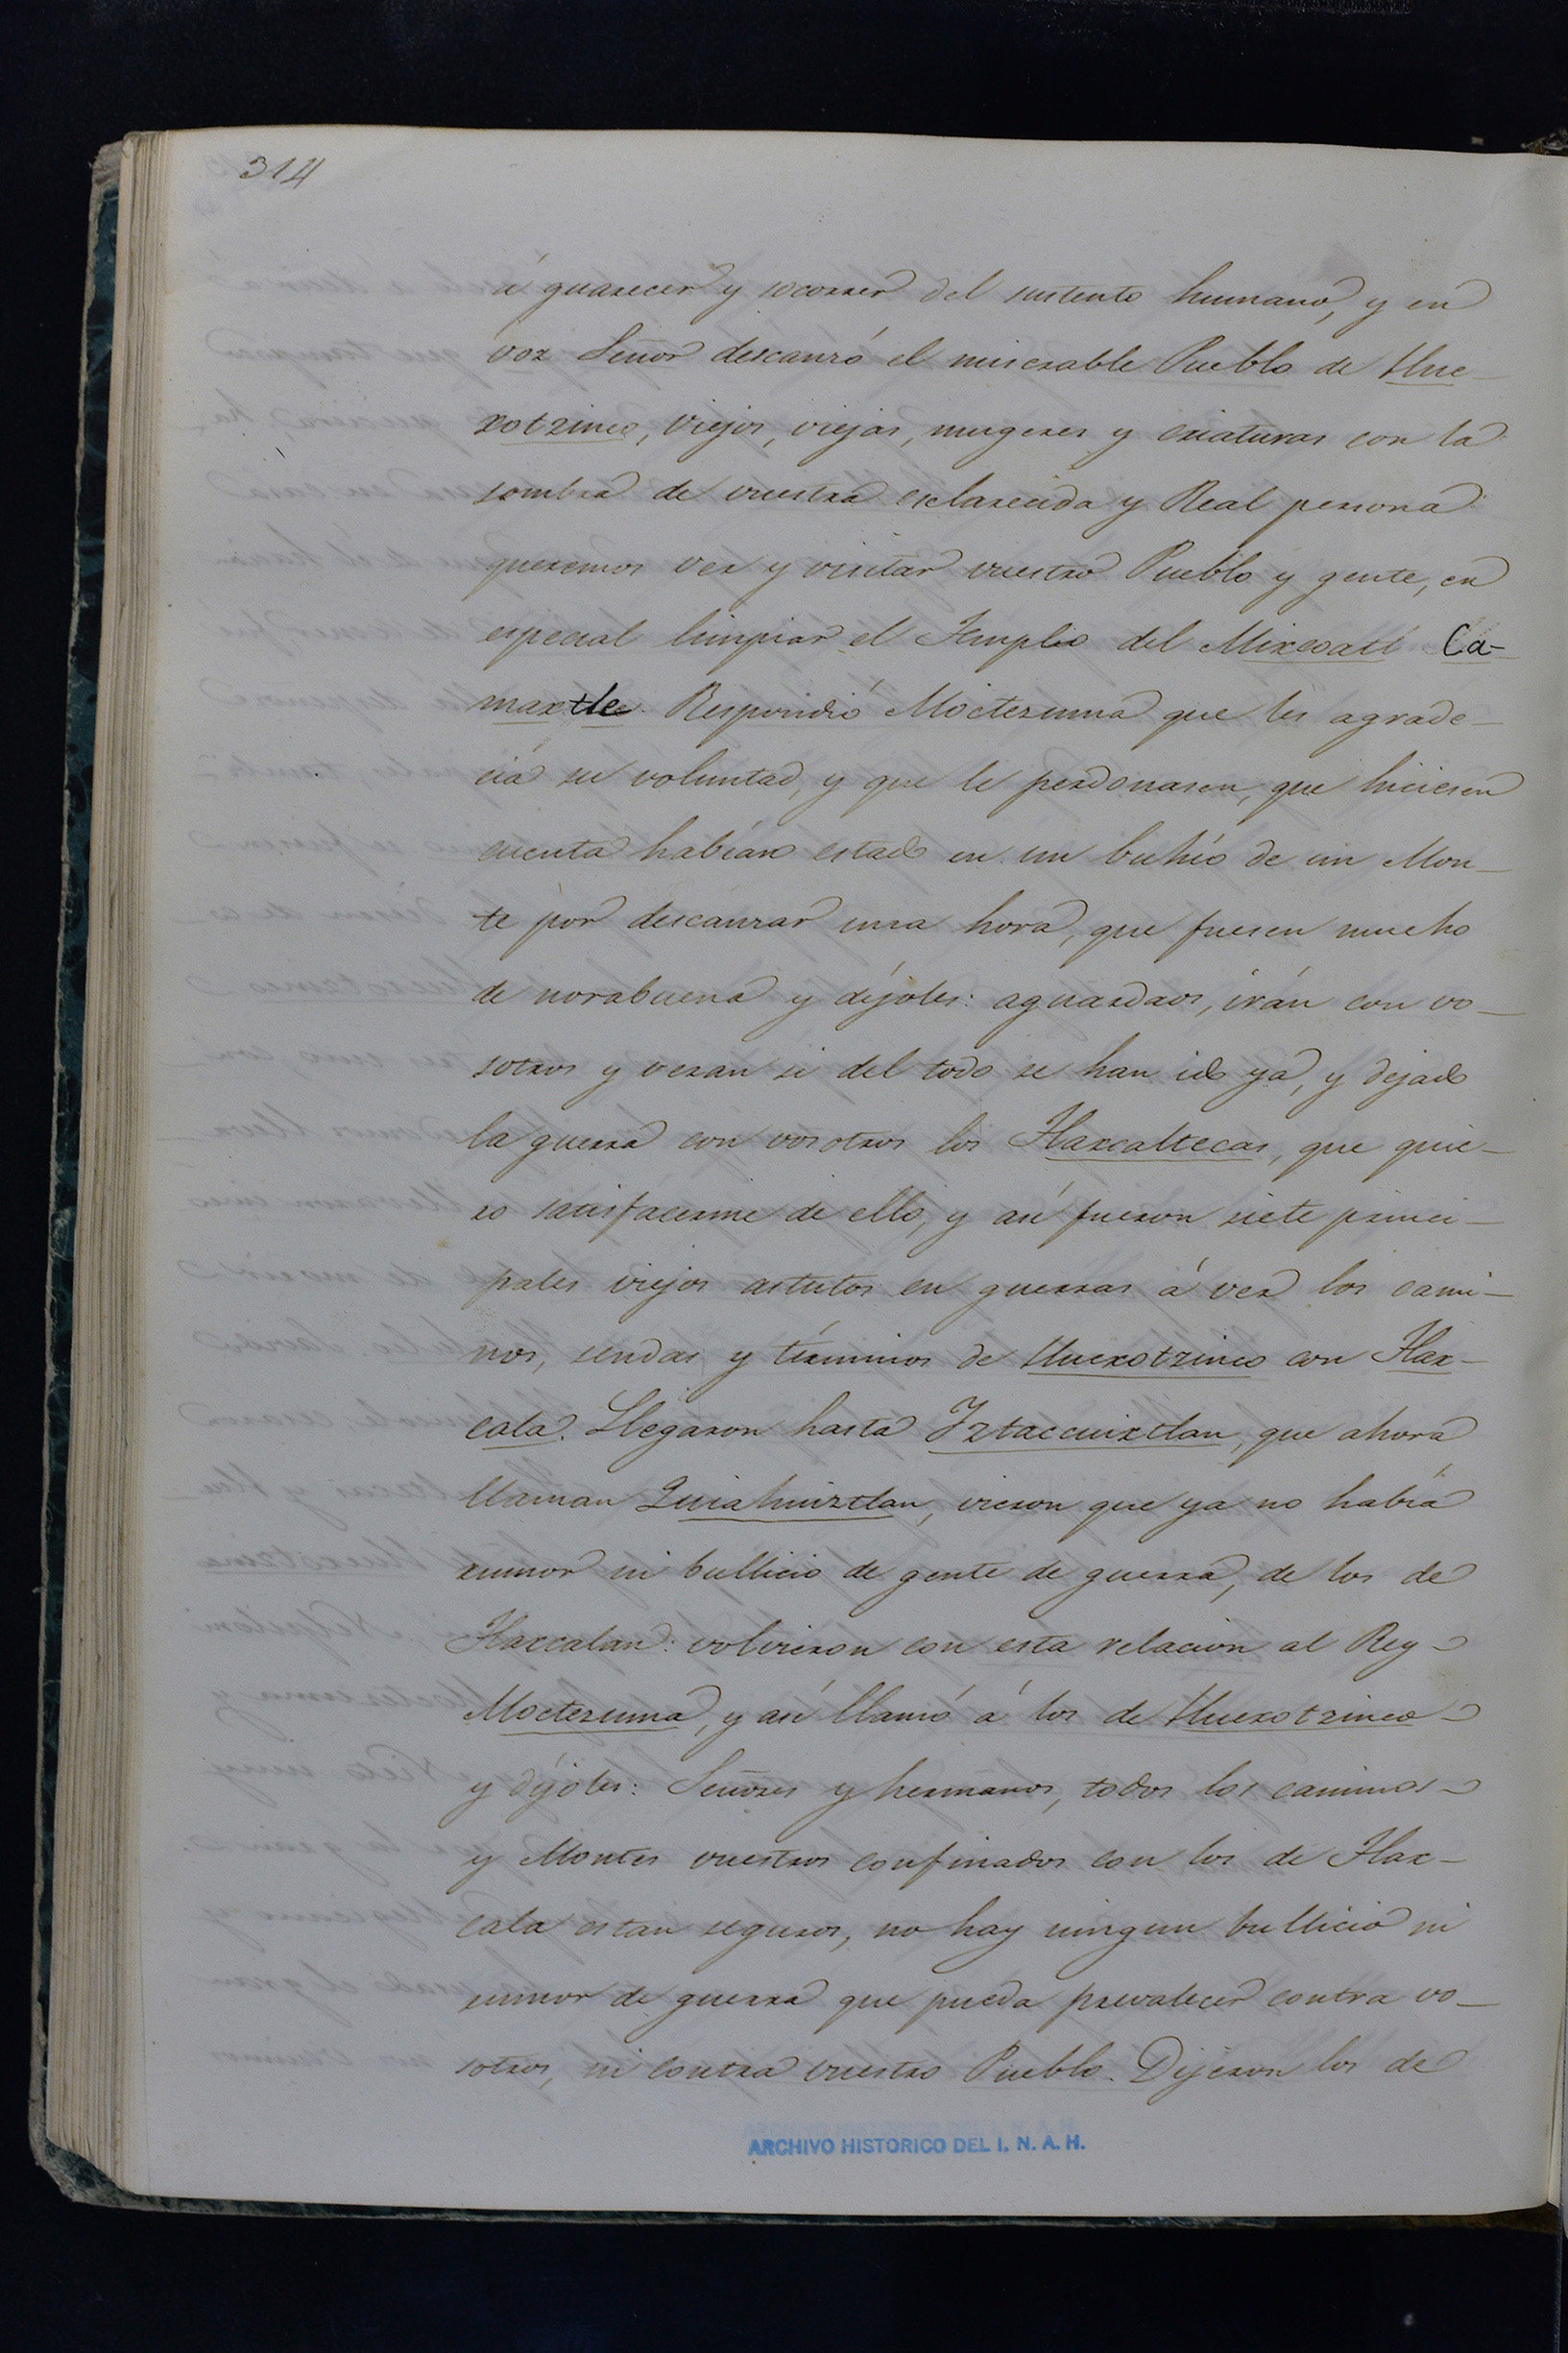 314
á guarecer y socorrer del sustento humano, y en
vos Señor descanzó el miserable Pueblo de Hue-
xotzinco, viejos, viejas, mugeres y criaturas con la
sombra de vuestra esclarecida y Real persona:
queremos ver y visitar vuestro Pueblo y gente, en
especial limpiar el Templo del Mixcoatl Ca-
maxtle. Respondió Moctezuma que les agrade-
cía su voluntad, y que le perdonasen, que hiciesen
cuenta habían estado en un buhío de un Mon-
te por descanzar una hora, que fuesen mucho
de norabuena y díjoles: aguardaos, irán con vo-
sotros y veran si del todo se han ido ya, y dejado
la guerra con vosotros los Tlaxcaltecas, que quie-
ro satisfacerme de ello, y así fueron siete princi-
pales viejos astutos en guerras á ver los cami-
nos, sendas y términos de Huexotzinco con Tlax-
cala. Llegaron hasta Iztaccuixtlan, que ahora
llaman Quiahuiztlan, vieron que ya no había
rumor ni bullicio de gente de guerra, de los de
Tlaxcalan: volvieron con esta relacion al Rey
Moctezuma, y así llamó á los de Huexotzinco
y díjoles: Señores y hermanos, todos los caminos
y Montes vuestros confinados con los de Tlax-
cala estan seguros, no hay ningun bullicio ni
rumor de guerra que pueda prevalecer contra vo-
sotros, ni contra vuestro Pueblo. Dijeron los de
ARCHIVO HISTORICO DEL I. N. A. H.